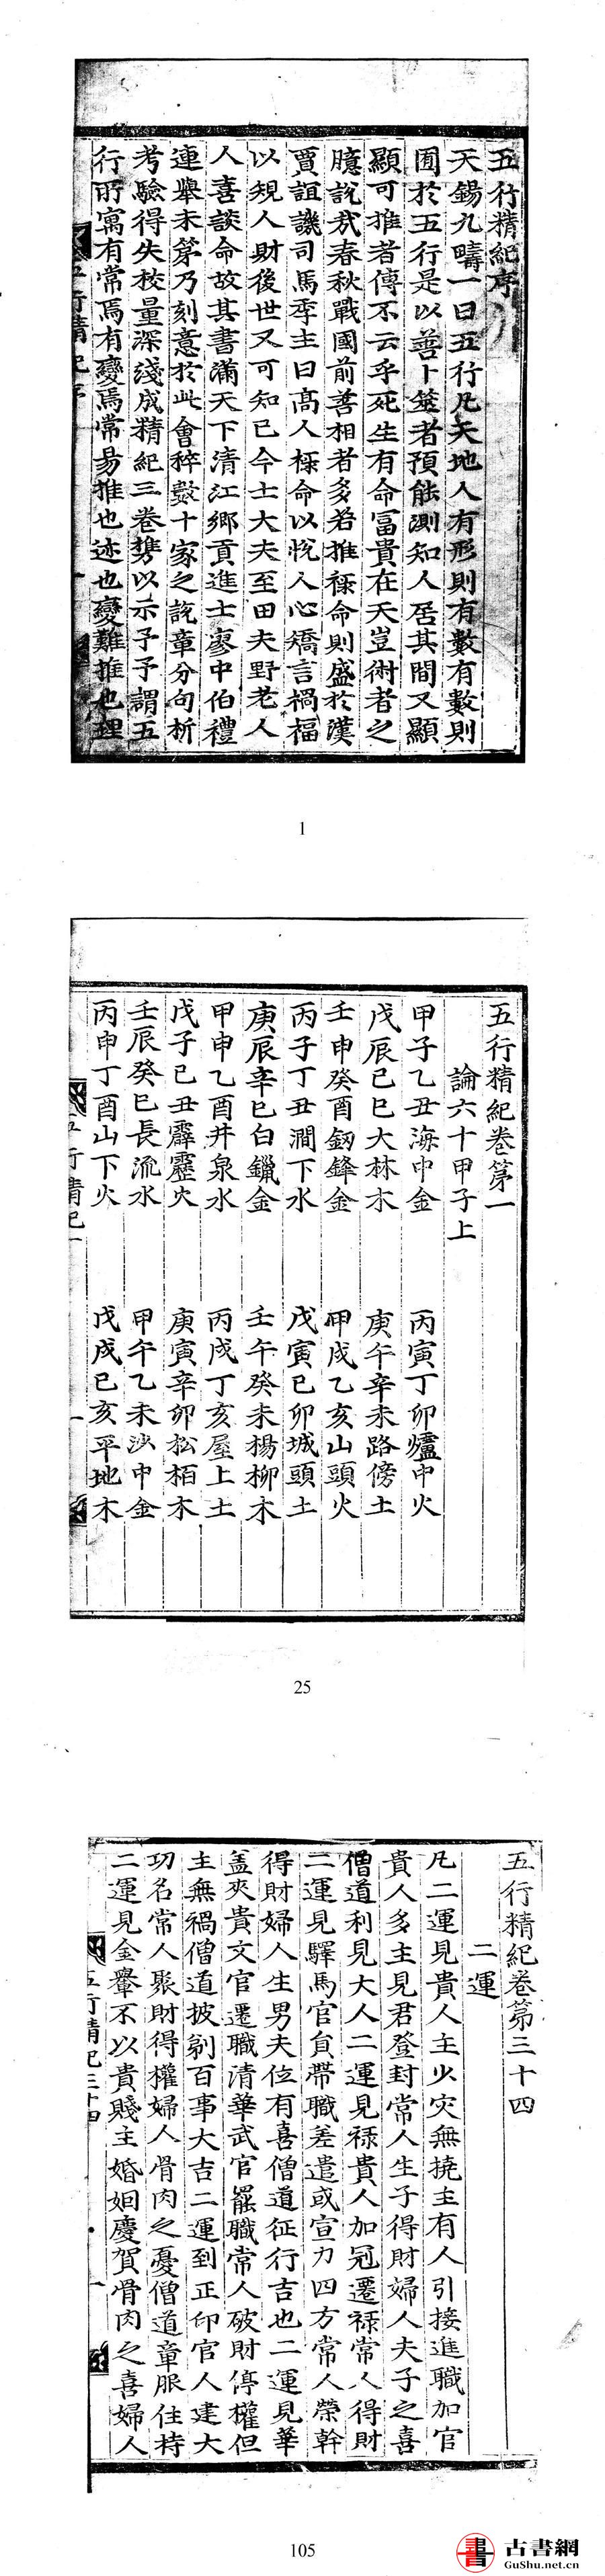 五行精紀序
天錫九疇一曰五行凡天地人有形則有數有數則
囿於五行是以善卜筮者預能測知人居其間又顯
顯可推者傳不云乎死生有命冨貴在天豈術者之
臆說哉春秋戰國前善相者多若推祿命則盛於漢
賈誼譏司馬季主曰髙人祿命以悅人心矯言禍福
以規人財後世又可知已今士大夫至田夫野老人
人喜談命故其書滿天下清江鄉貢進士廖中伯禮
連舉未第乃刻意於此會稡數十家之說章分句析
考驗得失校量深淺成精紀三卷携以示予予謂五
行所寓有常焉有變焉常易推也迹也變難推也理
五行精紀序
1
五行精紀卷第一
論六十甲子上
甲子乙丑海中金 丙寅丁卯爐中火
戊辰己巳大林木 庚午辛未路傍土
壬申癸酉釼鋒金 甲戌乙亥山頭火
丙子丁丑澗下水 戊寅己卯城頭土
庚辰辛巳白鑞金 壬午癸未楊柳木
甲申乙酉井泉水 丙戌丁亥屋上土
戊子己丑霹靂火 庚寅辛卯松栢木
壬辰癸巳長流水 甲午乙未沙中金
丙申丁酉山下火 戊戌己亥平地木
五行精紀一 一
25
五行精紀卷第三十四
二運
凡二運見貴人主少灾無撓主有人引接進職加官
貴人多主見君登封常人生子得財婦人夫子之喜
僧道利見大人二運見祿貴人加冠遷祿常人得財
二運見驛馬官負帶職差遣或宣力四方常人榮幹
得財婦人生男夫位有喜僧道征行吉也二運見華
盖夾貴文官遷職清華武官罷職常人破財停權但
主無禍僧道披剃百事大吉二運到正印官人建大
功名常人聚財得權婦人骨肉之憂僧道章服住持
二運見金轝不以貴賤主婚姻慶賀骨肉之喜婦人
五行精紀三十四 一
105
書 古書網
GuShu.net.cn